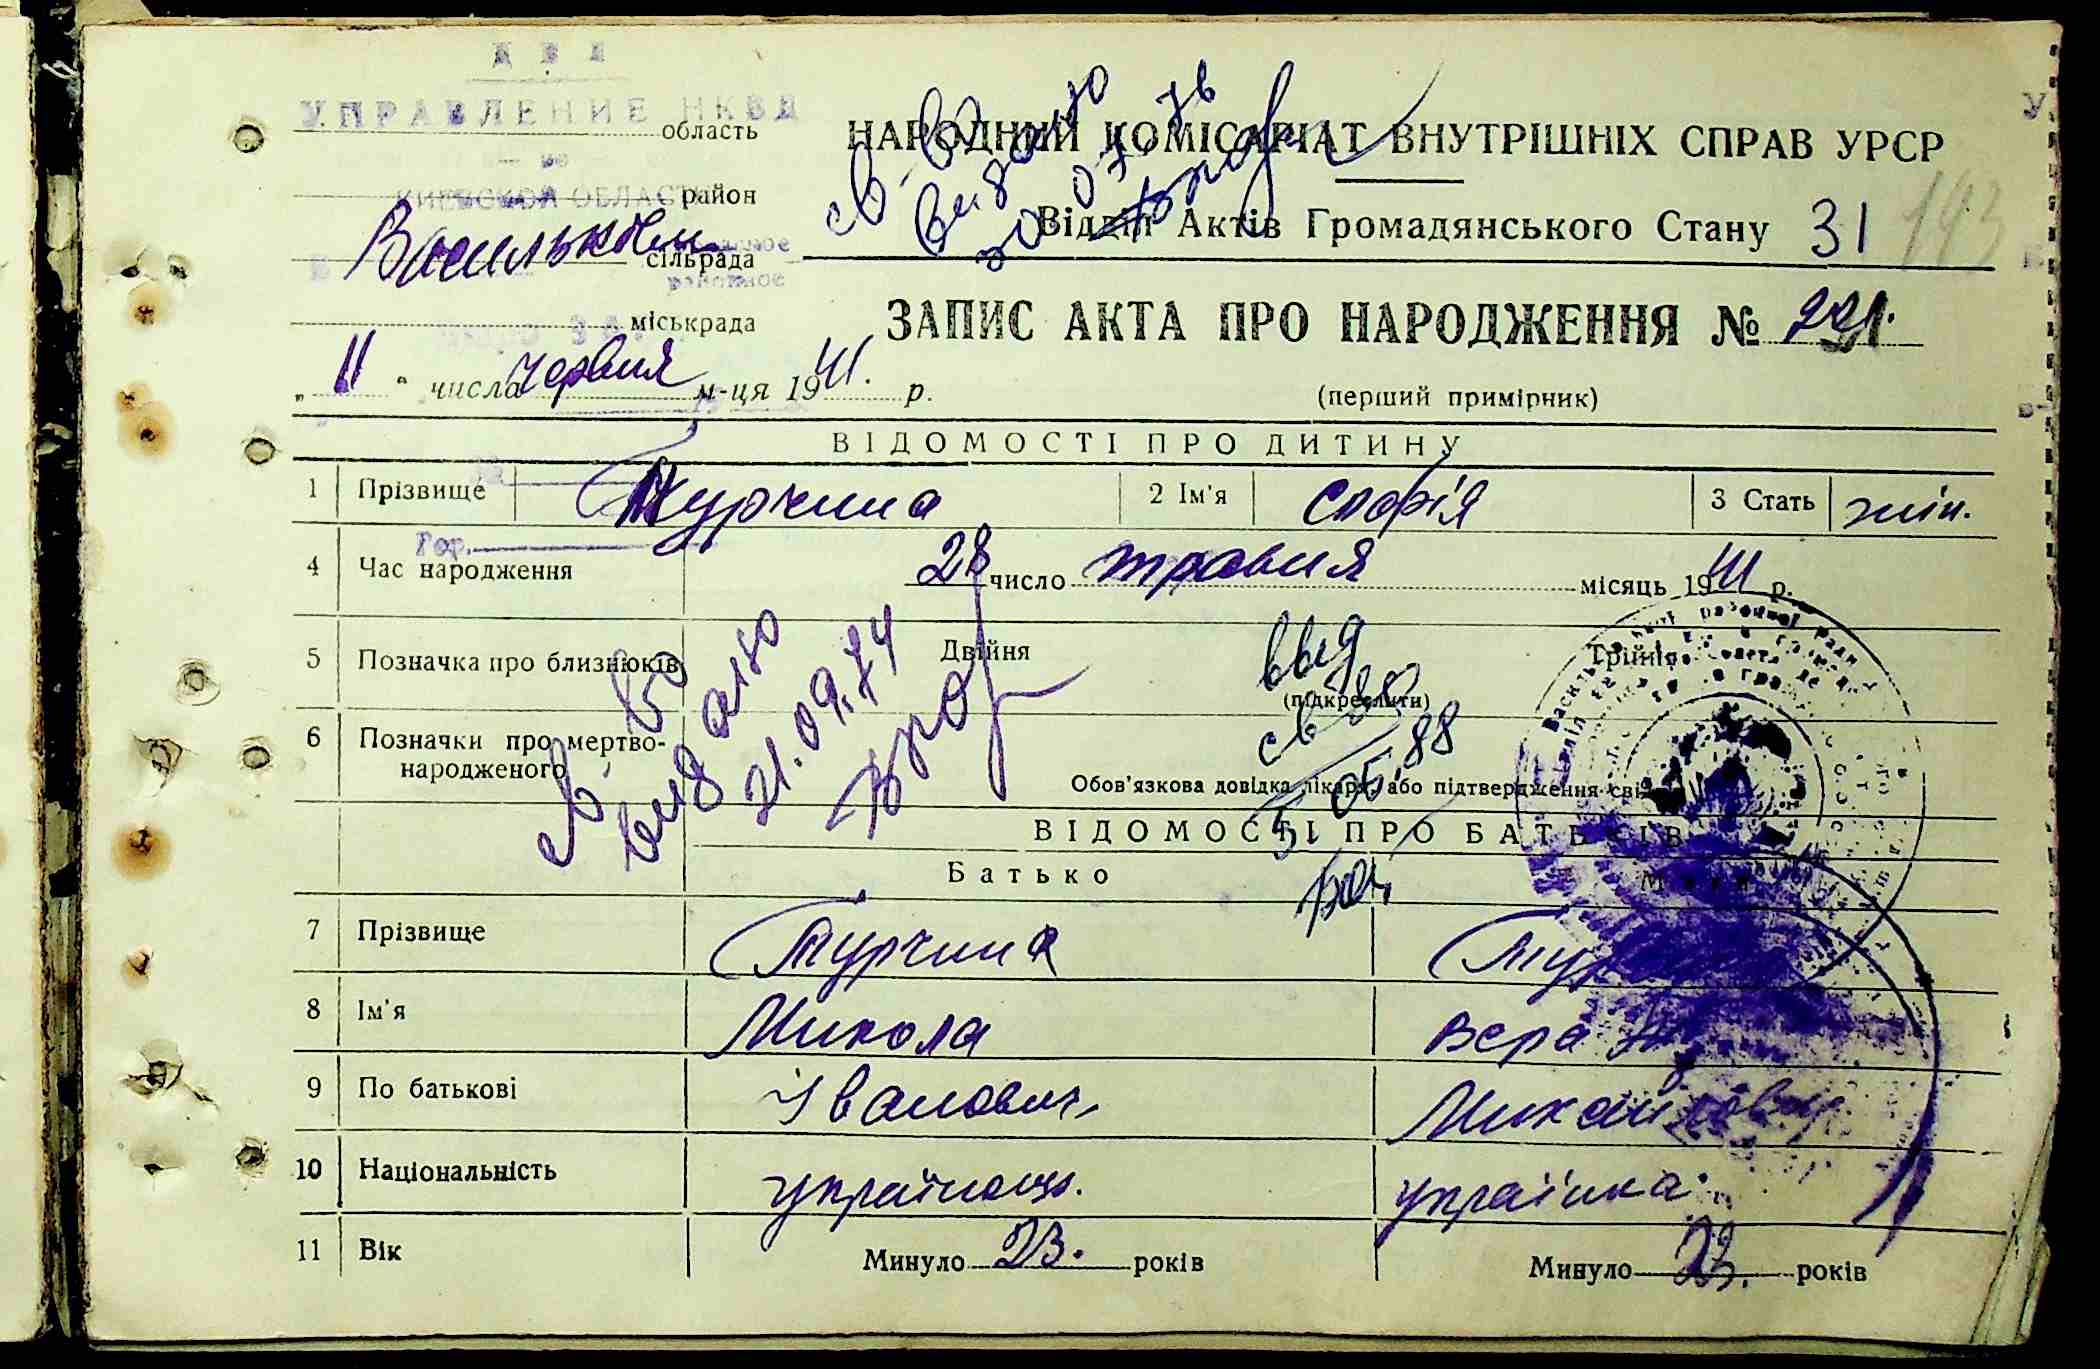 УПРАВЛЕНИЕ НКВД
область
КИЕВСКОЙ ОБЛАСТИ
район
сільрада
районное
міськрада
„11“ числа червня м-ця 1941. р.
НАРОДНИЙ КОМІСАРІАТ ВНУТРІШНІХ СПРАВ УРСР
Відділ Актів Громадянського Стану 31 193
ЗАПИС АКТА ПРО НАРОДЖЕННЯ № 221.
(перший примірник)
св. во
видано
30 07 76
ВІДОМОСТІ ПРО ДИТИНУ
1 Прізвище Турчина 2 Ім'я Софія 3 Стать жін.
Гор.
4 Час народження 28 число травня місяць 1941 р.
5 Позначка про близнюків Двійня Трійня
(підкреслити)
6 Позначки про мертвонародженого
Обов'язкова довідка лікаря, або підтвердження
св. во
видано
21.09.74
выд
св во
5 05.88
ВІДОМОСТІ ПРО БАТЬКІВ
Батько Мати
7 Прізвище Турчина
8 Ім'я Микола Вера
9 По батькові Іванович Михайловна
10 Національність українець. українка.
11 Вік Минуло 23. років Минуло 23. років